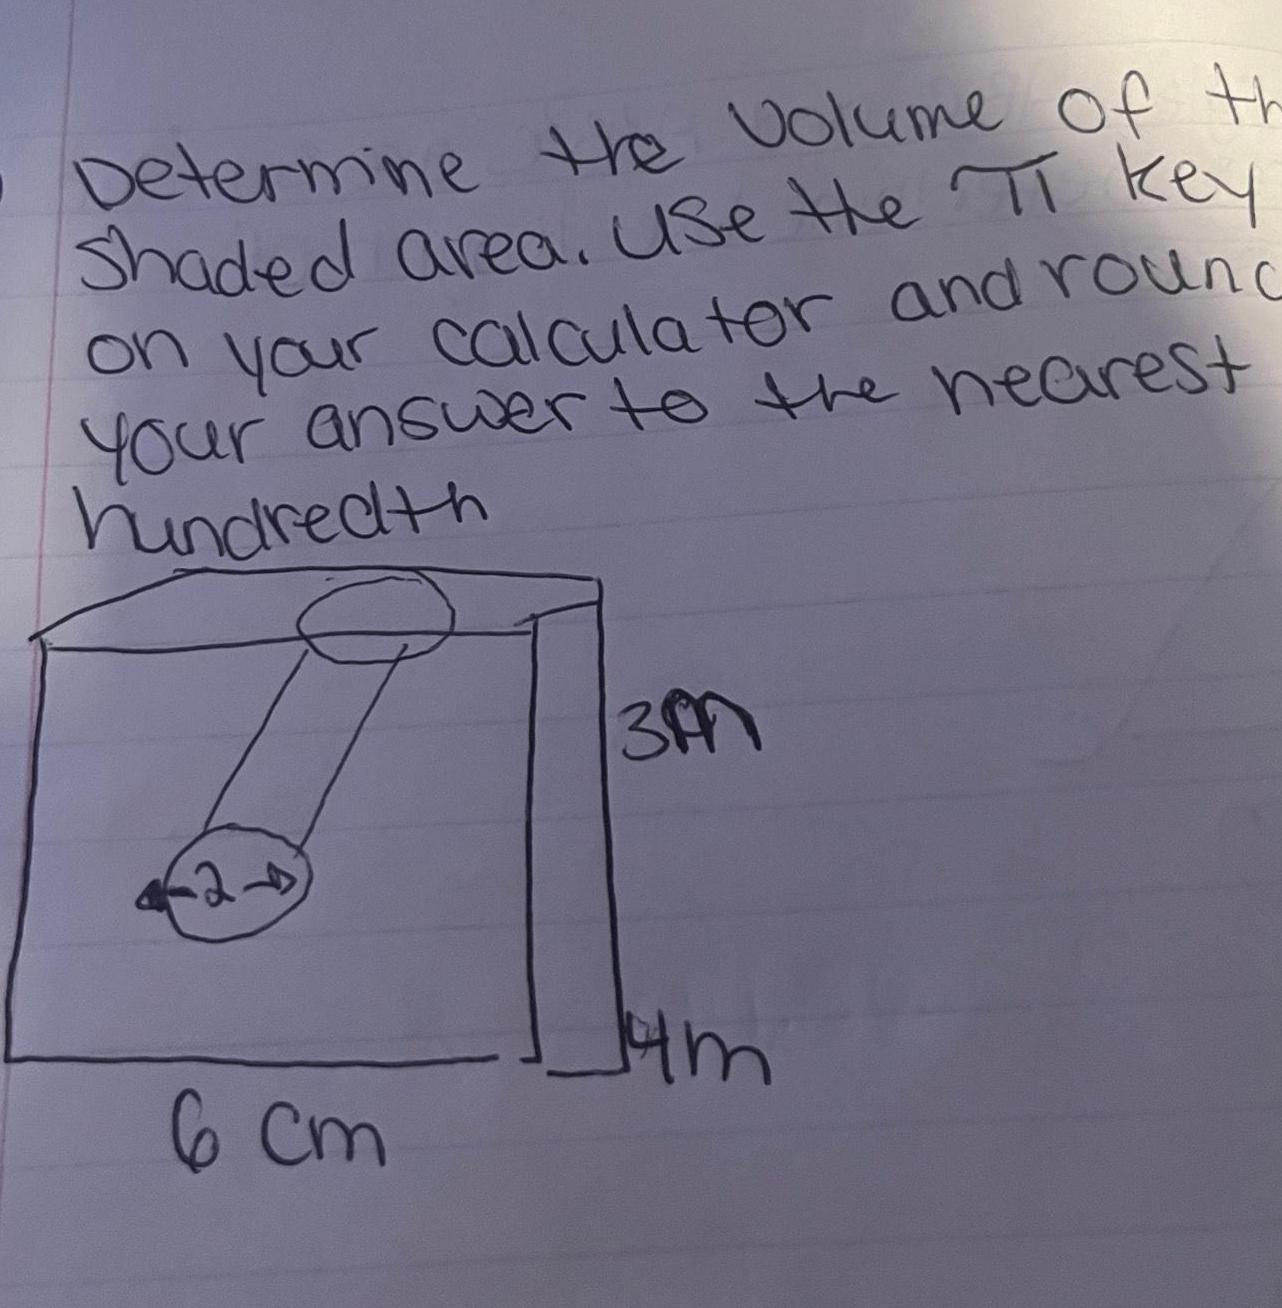 Determine the volume of th
shaded area. Use the π key
on your calculator and round
your answer to the nearest
hundredth
3m
2
4m
6 cm